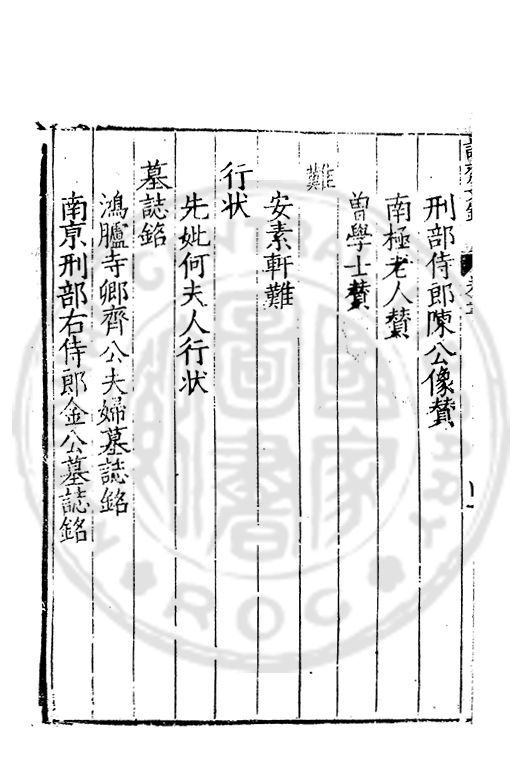 刑部侍郎陳公像賛
南極老人賛
曽學士賛
難
安素軒難
行状
先妣何夫人行状
墓誌銘
鴻臚寺卿齊公夫婦墓誌銘
南京刑部右侍郎金公墓誌銘